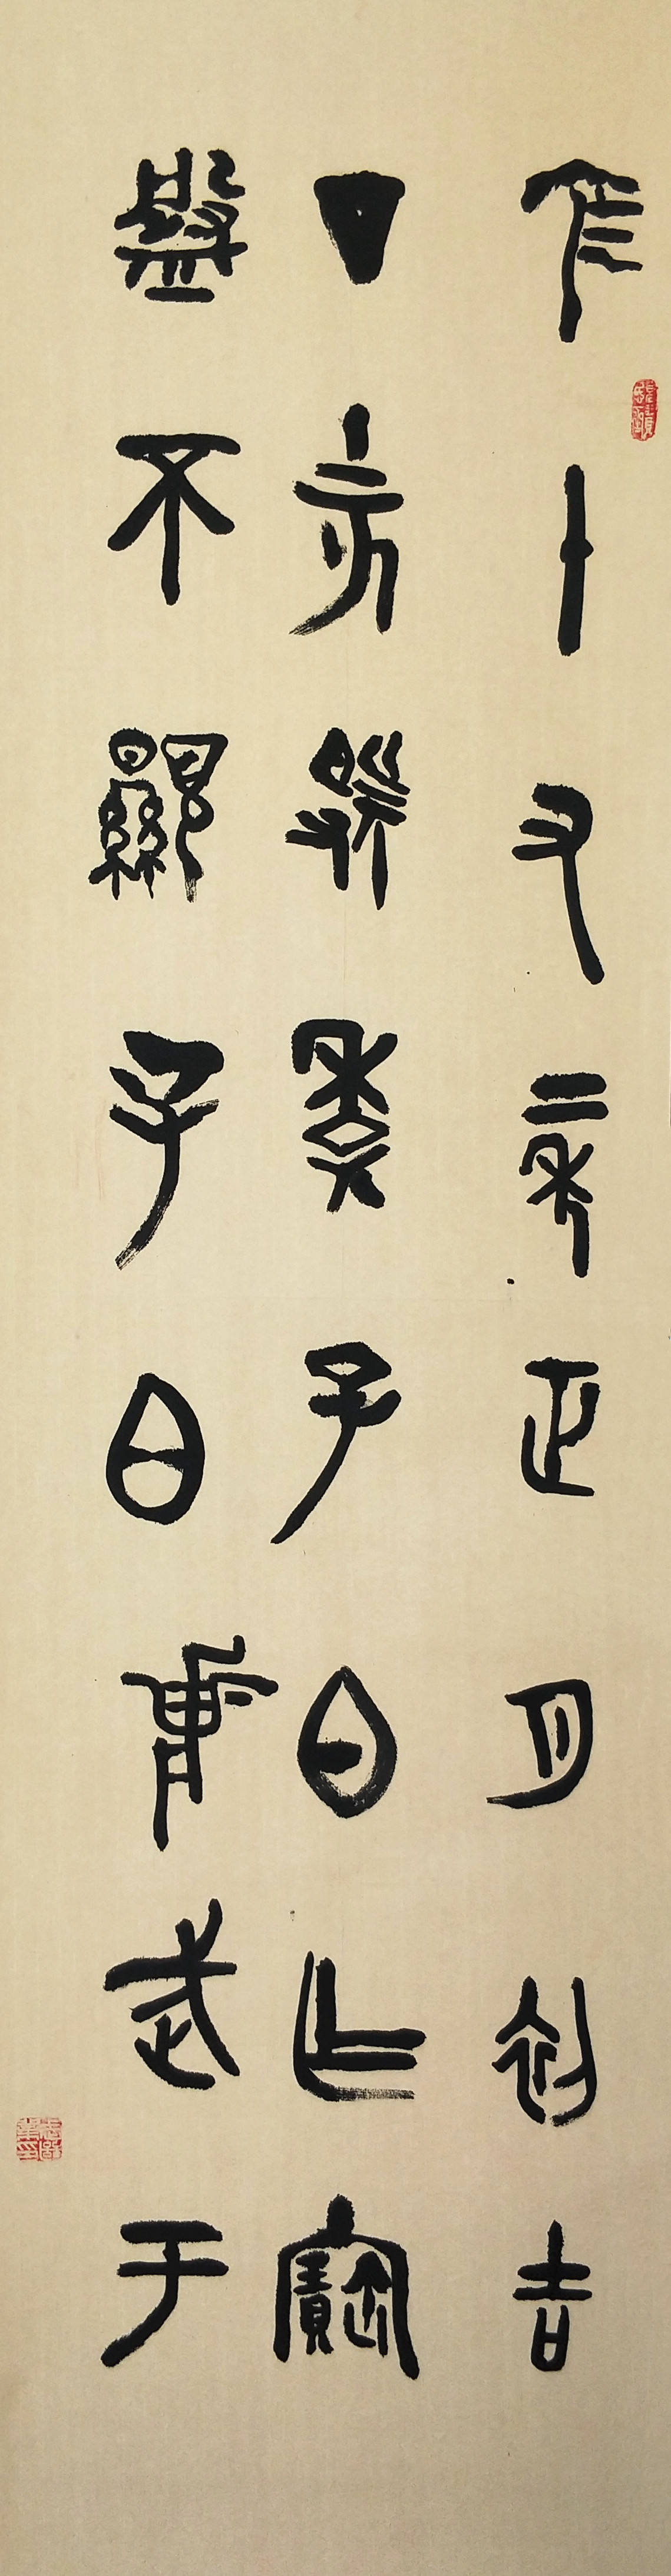 隹十又二年正月初吉
丁亥虢季子白乍寶
盤不顯子白壯武于